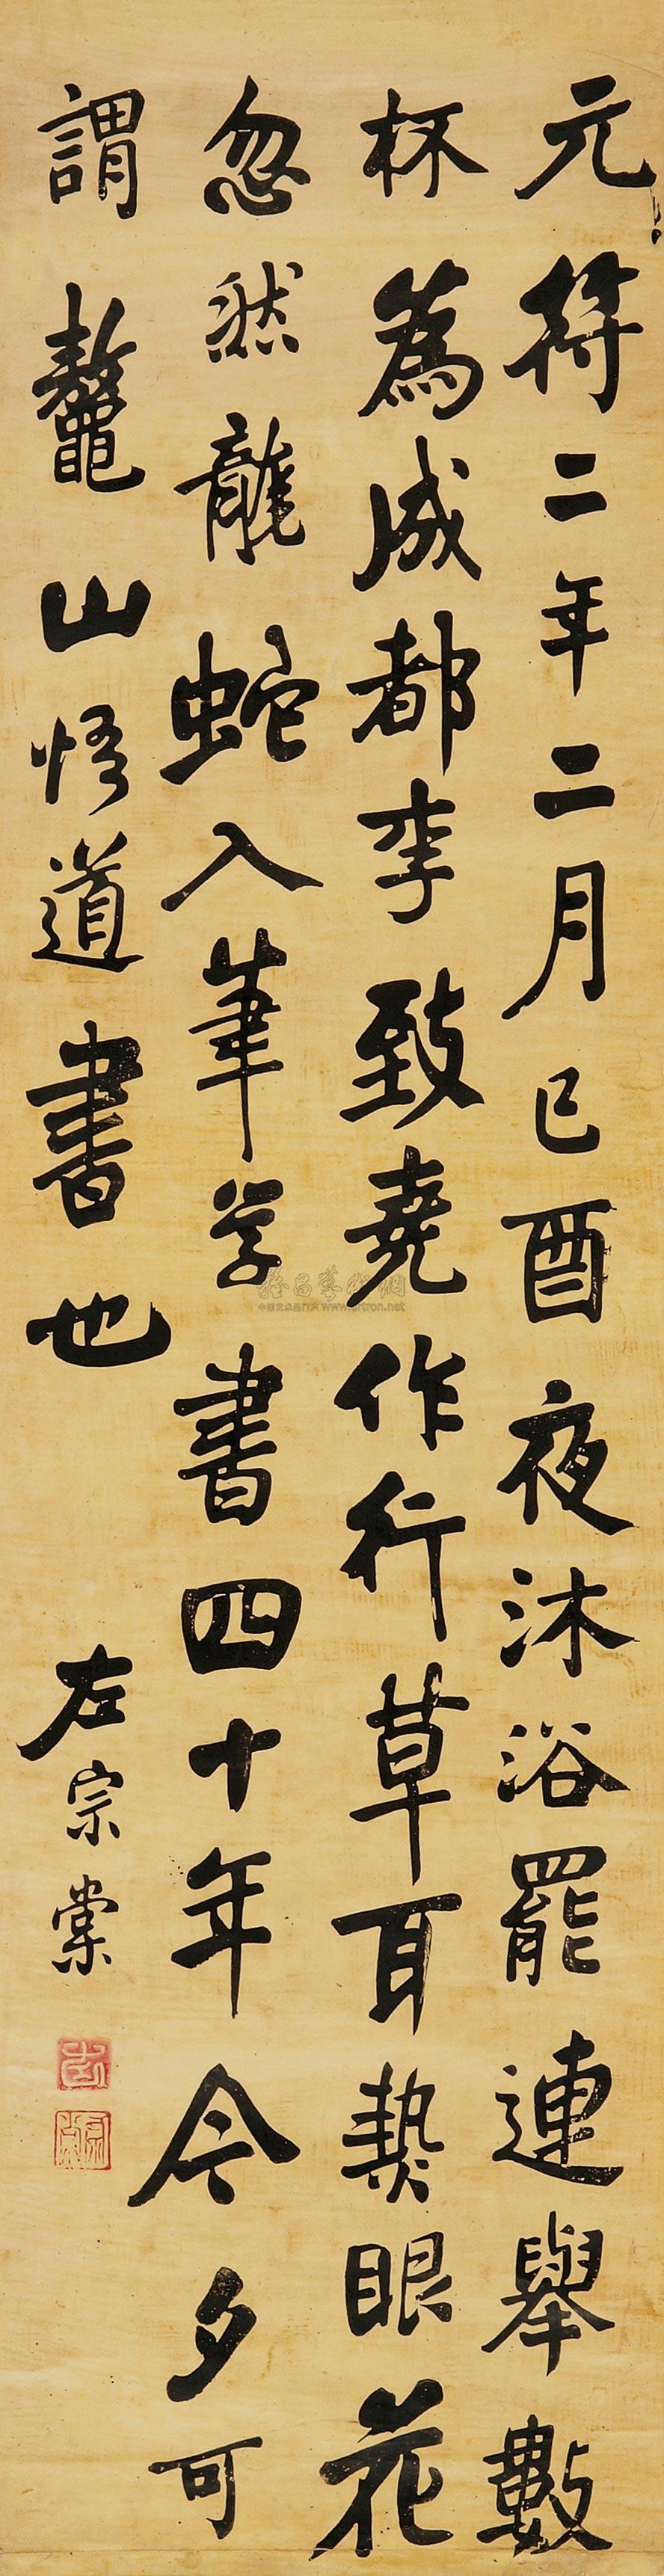 元符二年二月己酉夜沐浴罷連舉數
杯為成都李致堯作行草耳熱眼花
忽然龍蛇入筆學書四十年今夕可
謂鼇山悟道書也
左宗棠
www.artron.net